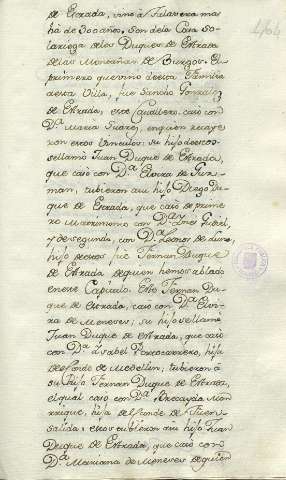 de Estrada, vino à Talavera mas
ha de 300 años, son dela Casa So-
lariega delos Duques de Estrada
delas Montañas de Burgos. El
primero que vino desta Familia
aesta Villa, fue Sancho Gonzalez
de Estrada, este Cavallero, caso con
Dª Maria Suarez, en quien recaye-
ron estos Vinculos: su hijo destos
se llamo Juan Duque de Estrada,
que casó con Dª Elvira de Guz-
man, tubieron a su hijo Diego Du-
que de Estrada, que casó de prime-
ro Matrimonio con Dª Ynes Gudiel,
y de segundo, con Dª Leonor de Luna,
hijo destos fue Fernan Duque
de Estrada de quien hemos ablado
en este Capitulo. Este Fernan Du-
que de Estrada, caso con Dª Elvi-
ra de Meneses; su hijo se llamó
Juan Duque de Estrada, que casó
con Dª Ysabel Portocarrero, hija
del Conde de Medellin; tubieron à
su hijo Fernan Duque de Estrada,
el qual casó con Dª Man-
rique, hija del Conde de Fuen-
salida: estos tubieron a su hijo Juan
Duque de Estrada, que caso con
Dª Mariana de Meneses de quien